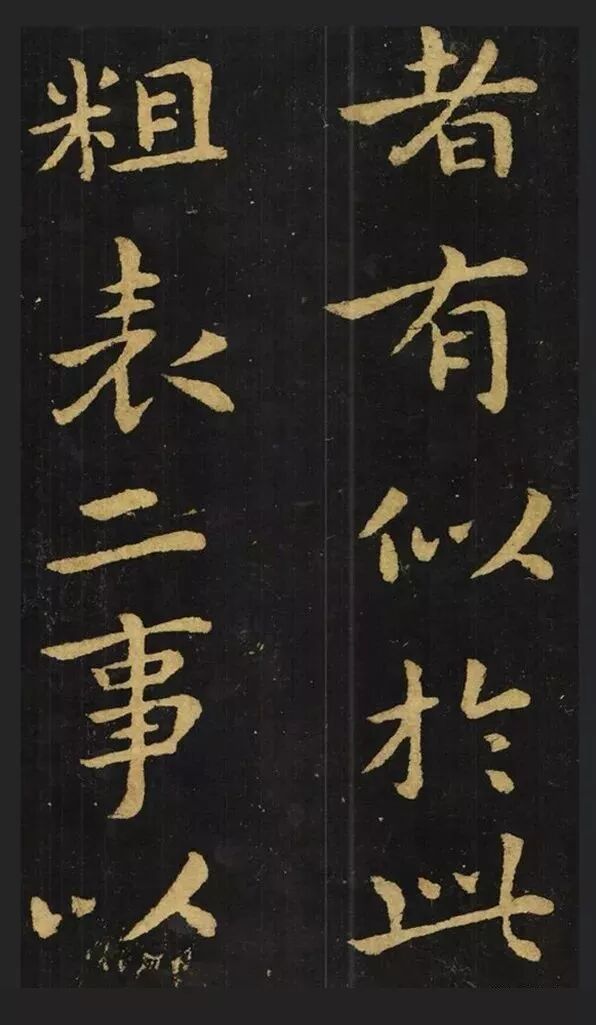 者有似於此
粗表二事以